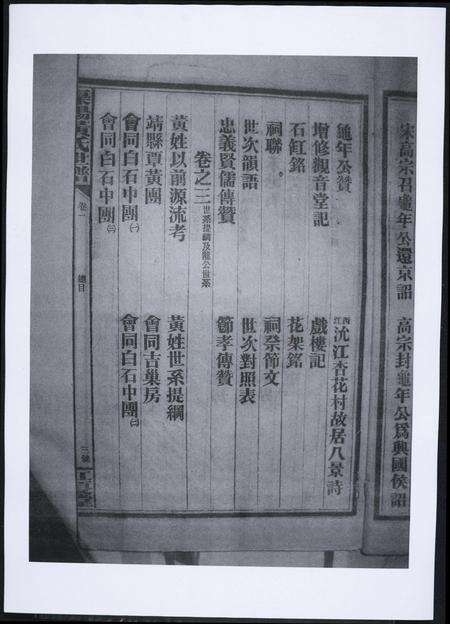 宋高宗召龜年公還京詔　高宗封龜年公為興國侯詔
龜年公贊　江西沇江杏花村故居八景詩
增修觀音堂記　戲樓記
石缸銘　花架銘
祠聯　祠祭節文
世次韻語　世次對照表
忠義賢儒傳贊　節孝傳贊
卷之三世系提綱及龍公世系
黃姓以前源流考　黃姓世系提綱
靖縣覃黃團　會同吉巢房
會同白石中團㈠　會同白石中團㈡
會同白石中團㈢
黃氏世譜　卷一　總目